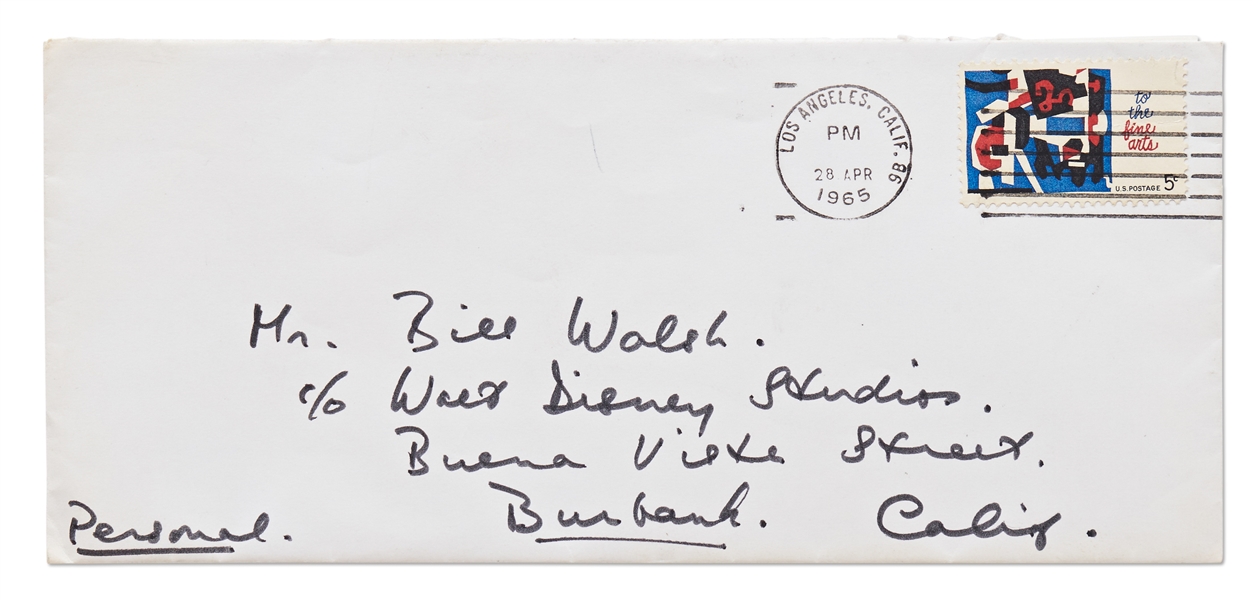 LOS ANGELES, CALIF. B6
PM
28 APR
1965
to
the
fine
arts
U.S. POSTAGE 5c
Mr. Bill Walsh.
c/o Walt Disney Studios.
Buena Vista Street.
Burbank. Calif.
Personal.